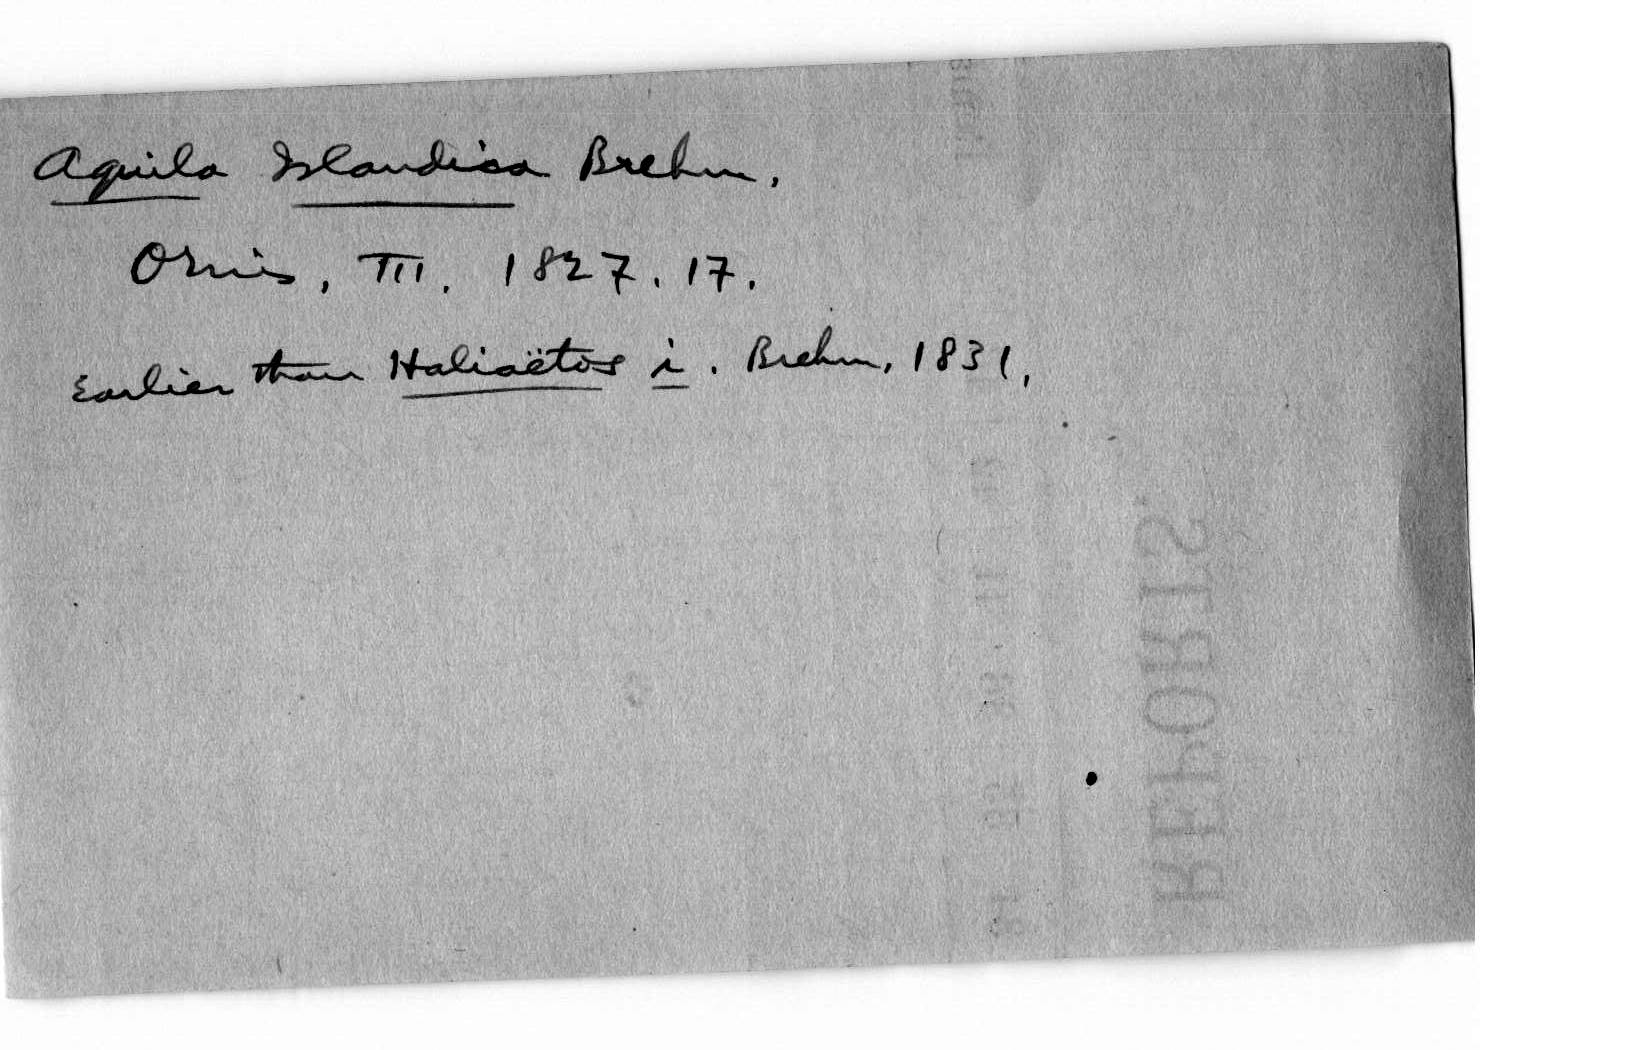 Aquila Islandica Brehm.
Ornis, III. 1827. 17.
Earlier than Haliaëtos i. Brehm, 1831.
REPORTS